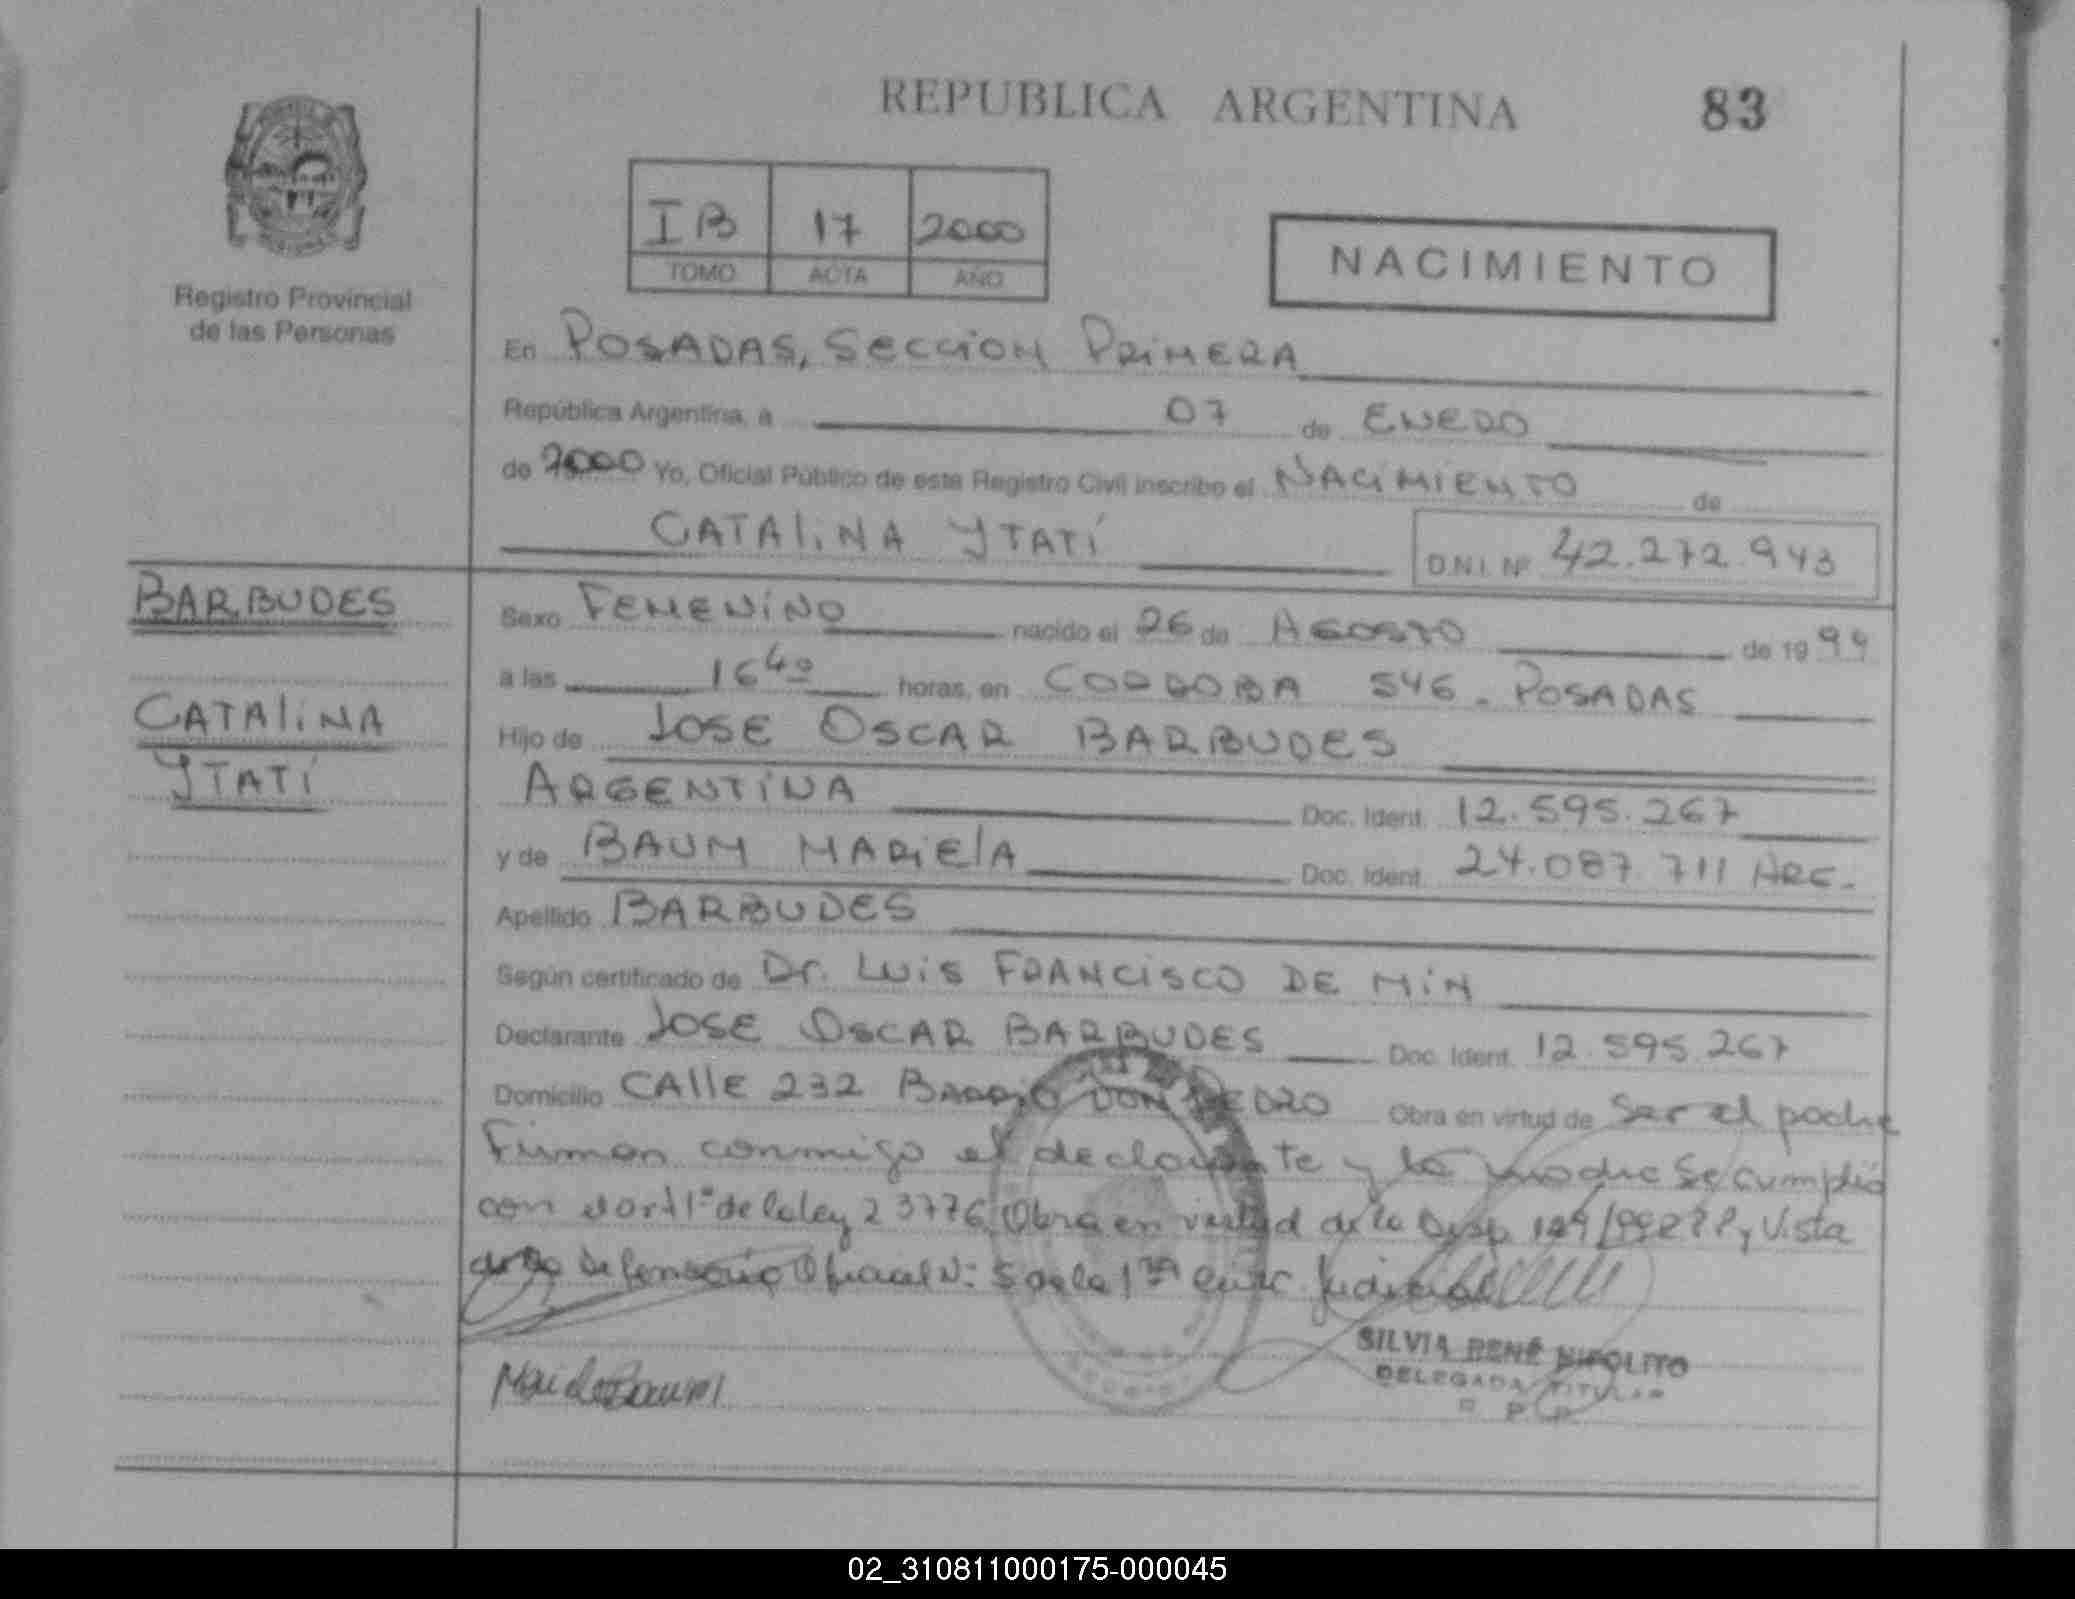 REPUBLICA ARGENTINA 83
IB 17 2000
TOMO ACTA AÑO
NACIMIENTO
Registro Provincial
de las Personas
En POSADAS, SECCION PRIMERA
República Argentina, a 07 de ENERO
de 2000 Yo, Oficial Público de este Registro Civil inscribo el NACIMIENTO de
CATALINA YTATÍ D.N.I. Nº 42.272.943
BARBUDES
CATALINA
YTATÍ
Sexo FEMENINO nacido el 26 de AGOSTO de 1999
a las 16 40 horas, en CORDOBA 546 - POSADAS
Hijo de JOSE OSCAR BARBUDES
ARGENTINA Doc. Ident. 12.595.267
y de BAUM MARIELA Doc. Ident. 24.087.711 ARG.
Apellido BARBUDES
Según certificado de Dr. LUIS FRANCISCO DE MIN
Declarante JOSE OSCAR BARBUDES Doc. Ident. 12.595.267
Domicilio CALLE 232 BARRIO DON PEDRO Obra en virtud de Ser el padre
Firman conmigo el declarante y la madre Se cumplió
con el art 1º de la ley 23776 Obra en virtud de la Disp y Vista
Defensoria Oficial Nº 5 de la 1ra Circ. Judicial
Mariela Baum
SILVIA RENÉ HIPOLITO
DELEGADA TITULAR
R. P. P.
02_310811000175-000045